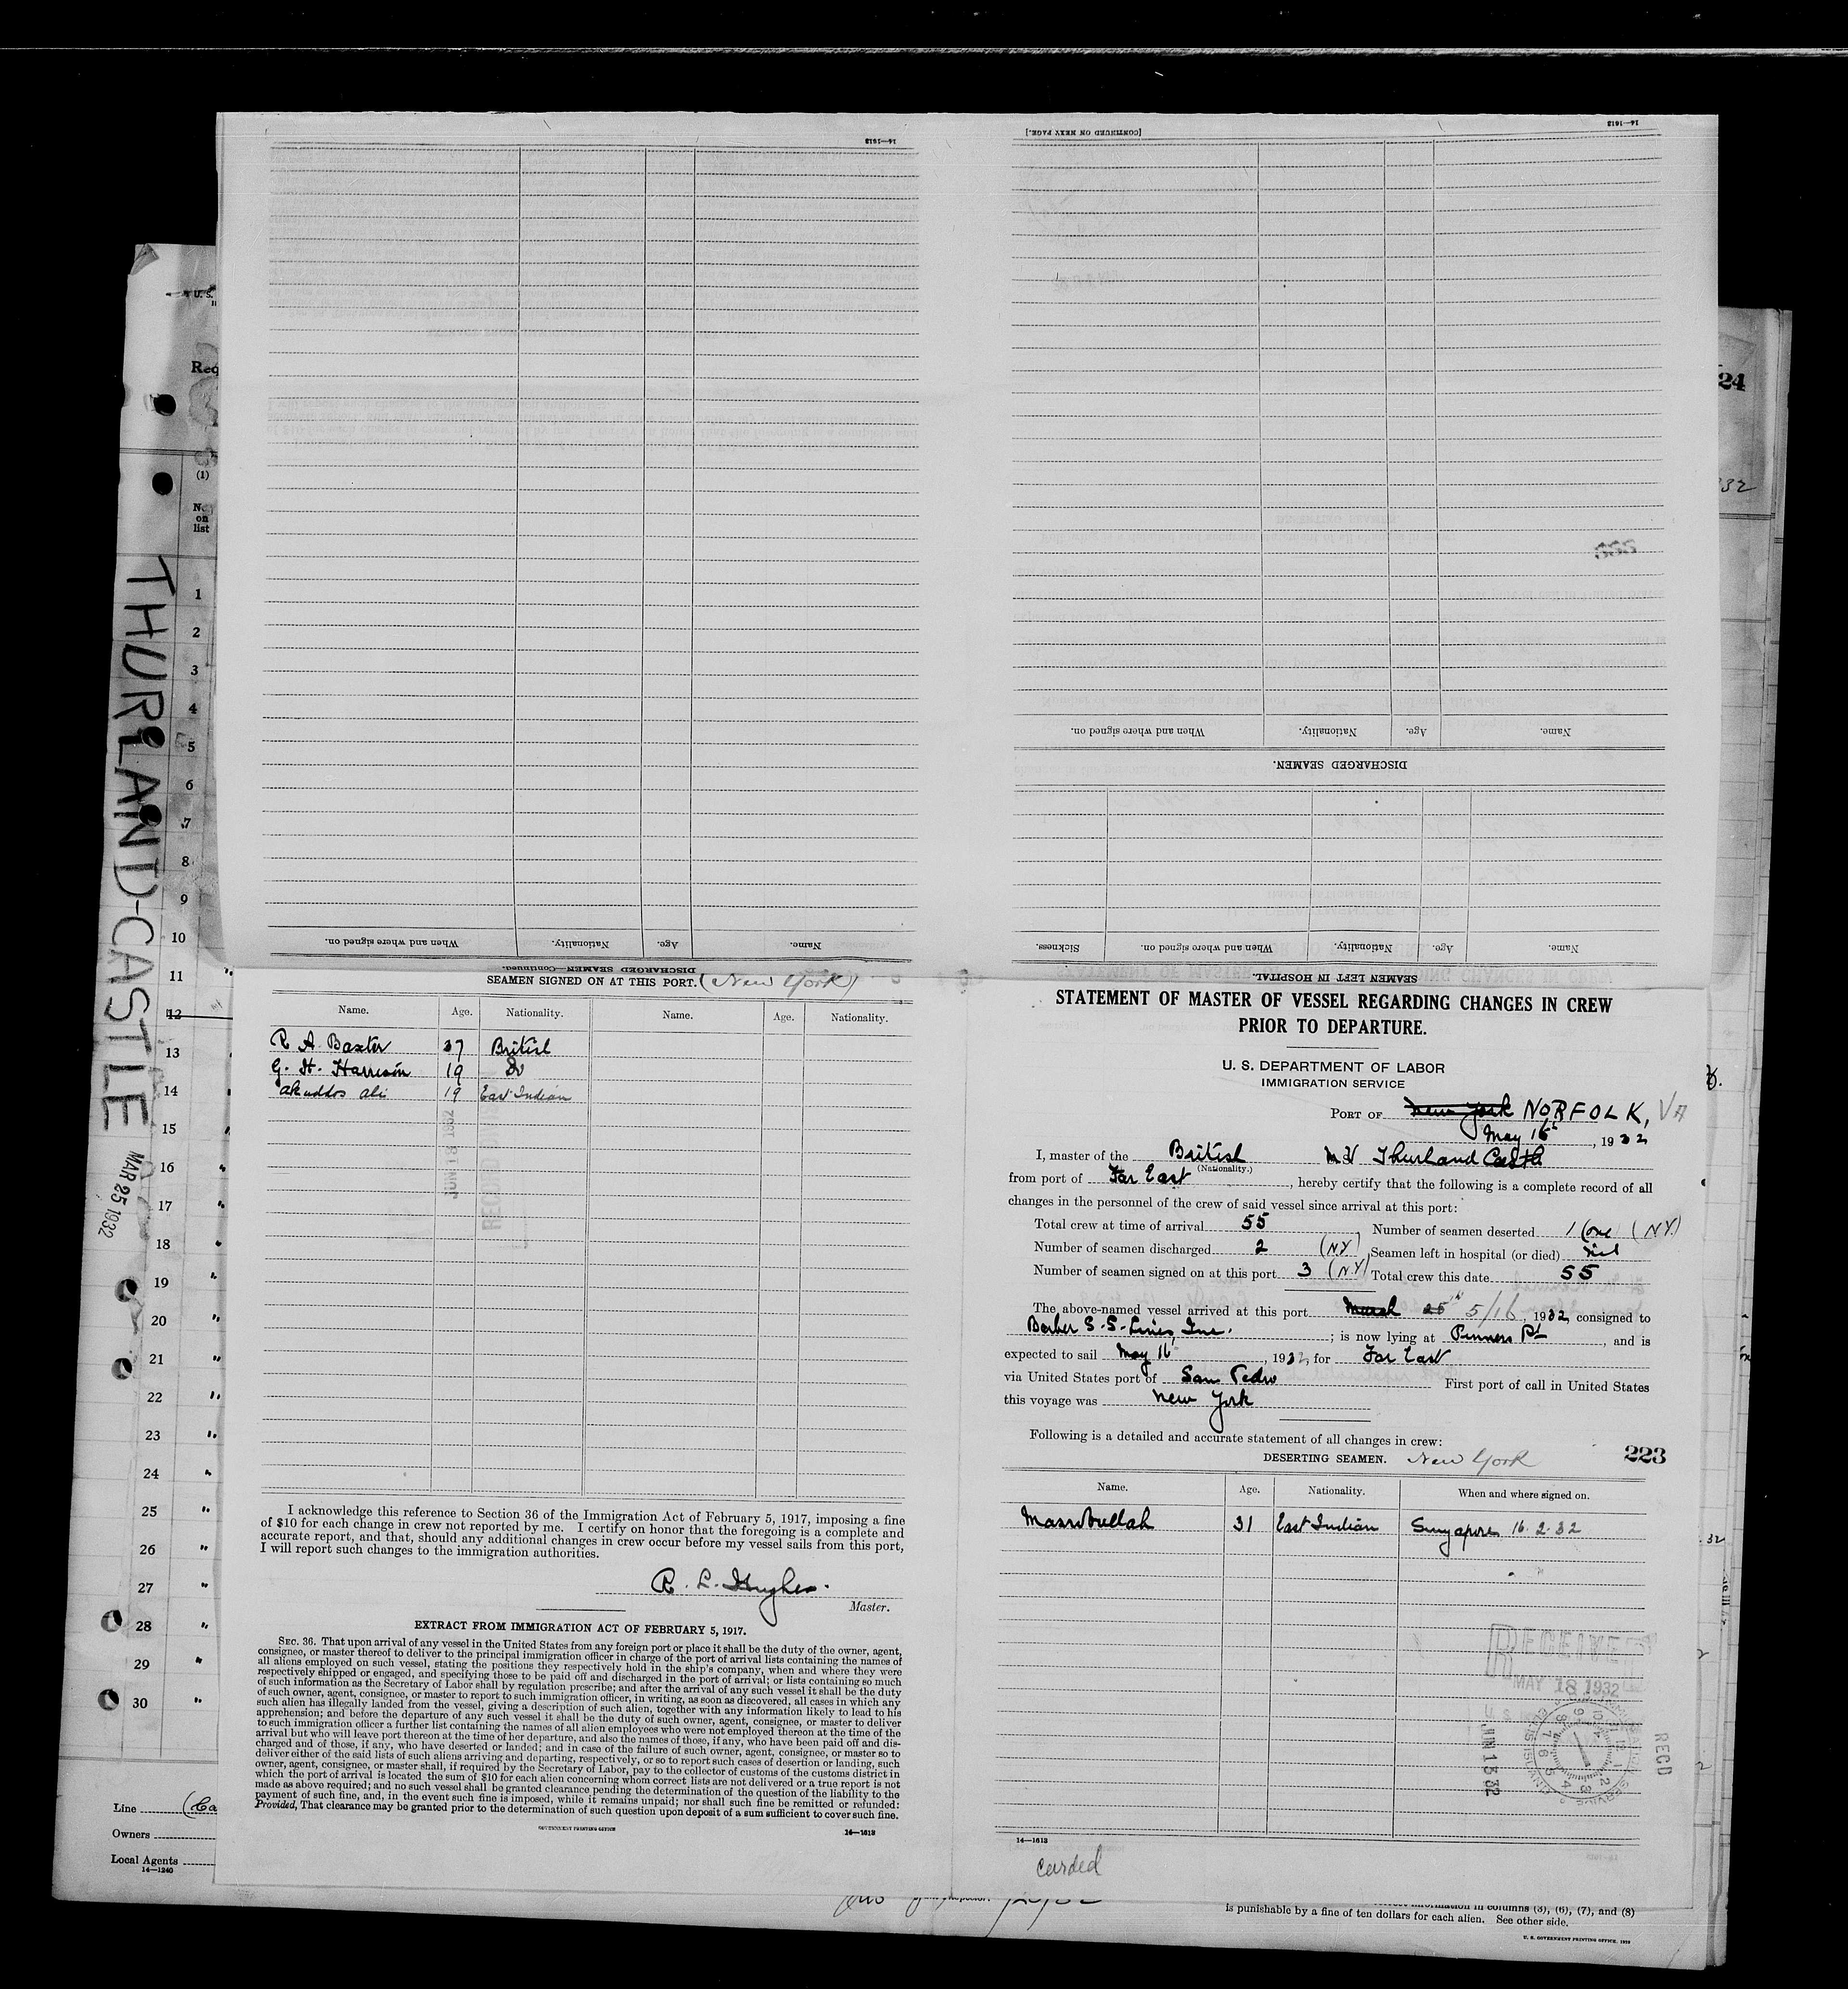 14—1613
[CONTINUED ON NEXT PAGE.]
14—1613
When and where signed on.
Nationality.
Age.
Name.
DISCHARGED SEAMEN.
Sickness.
When and where signed on.
Nationality.
Age.
Name.
SEAMEN LEFT IN HOSPITAL.
When and where signed on.
Nationality.
Age.
Name.
DISCHARGED SEAMEN—Continued.
U. S.
Req
(1)
No.
on
list
THURLAND-CASTLE
MAR 25 1932
1
2
3
4
5
6
7
8
9
10
11
12
13
14
15
16
17
18
19
20
21
22
23
24
25
26
27
28
29
30
Line
Owners
Local Agents
14—1240
24
32
SEAMEN SIGNED ON AT THIS PORT. (New York)
Name. Age. Nationality. Name. Age. Nationality.
R A Baxter 37 British
G. H. Harrison 19 Do
ali 19 East Indian
JUN 18 1932
I acknowledge this reference to Section 36 of the Immigration Act of February 5, 1917, imposing a fine
of $10 for each change in crew not reported by me. I certify on honor that the foregoing is a complete and
accurate report, and that, should any additional changes in crew occur before my vessel sails from this port,
I will report such changes to the immigration authorities.
R. L. Hughes.
Master.
EXTRACT FROM IMMIGRATION ACT OF FEBRUARY 5, 1917.
SEC. 36. That upon arrival of any vessel in the United States from any foreign port or place it shall be the duty of the owner, agent,
consignee, or master thereof to deliver to the principal immigration officer in charge of the port of arrival lists containing the names of
all aliens employed on such vessel, stating the positions they respectively hold in the ship's company, when and where they were
respectively shipped or engaged, and specifying those to be paid off and discharged in the port of arrival; or lists containing so much
of such information as the Secretary of Labor shall by regulation prescribe; and after the arrival of any such vessel it shall be the duty
of such owner, agent, consignee, or master to report to such immigration officer, in writing, as soon as discovered, all cases in which any
such alien has illegally landed from the vessel, giving a description of such alien, together with any information likely to lead to his
apprehension; and before the departure of any such vessel it shall be the duty of such owner, agent, consignee, or master to deliver
to such immigration officer a further list containing the names of all alien employees who were not employed thereon at the time of the
arrival but who will leave port thereon at the time of her departure, and also the names of those, if any, who have been paid off and dis-
charged and of those, if any, who have deserted or landed; and in case of the failure of such owner, agent, consignee, or master so to
deliver either of the said lists of such aliens arriving and departing, respectively, or so to report such cases of desertion or landing, such
owner, agent, consignee, or master shall, if required by the Secretary of Labor, pay to the collector of customs of the customs district in
which the port of arrival is located the sum of $10 for each alien concerning whom correct lists are not delivered or a true report is not
made as above required; and no such vessel shall be granted clearance pending the determination of the question of the liability to the
payment of such fine, and, in the event such fine is imposed, while it remains unpaid; nor shall such fine be remitted or refunded:
Provided, That clearance may be granted prior to the determination of such question upon deposit of a sum sufficient to cover such fine.
GOVERNMENT PRINTING OFFICE
14—1613
STATEMENT OF MASTER OF VESSEL REGARDING CHANGES IN CREW
PRIOR TO DEPARTURE.
U. S. DEPARTMENT OF LABOR
IMMIGRATION SERVICE
PORT OF New York NORFOLK, VA
May 16, 1932
I, master of the British M V Thurland Castle
(Nationality.)
from port of Far East, hereby certify that the following is a complete record of all
changes in the personnel of the crew of said vessel since arrival at this port:
Total crew at time of arrival 55 Number of seamen deserted 1 (one (N.Y.)
Number of seamen discharged 2 (N.Y) Seamen left in hospital (or died) Nil
Number of seamen signed on at this port 3 (N.Y) Total crew this date 55
The above-named vessel arrived at this port March 25 5/16, 1932, consigned to
Barber S.S. Lines, Inc. ; is now lying at Pinners Pt, and is
expected to sail May 16, 1932, for Far East
via United States port of San Pedro First port of call in United States
this voyage was New York
Following is a detailed and accurate statement of all changes in crew:
DESERTING SEAMEN. New York
223
Name. Age. Nationality. When and where signed on.
31 East Indian Singapore 16.2.32
RECEIVED
MAY 18 1932
JUN 15 32
RECD
14—1613
carded
is punishable by a fine of ten dollars for each alien. See other side.
U. S. GOVERNMENT PRINTING OFFICE